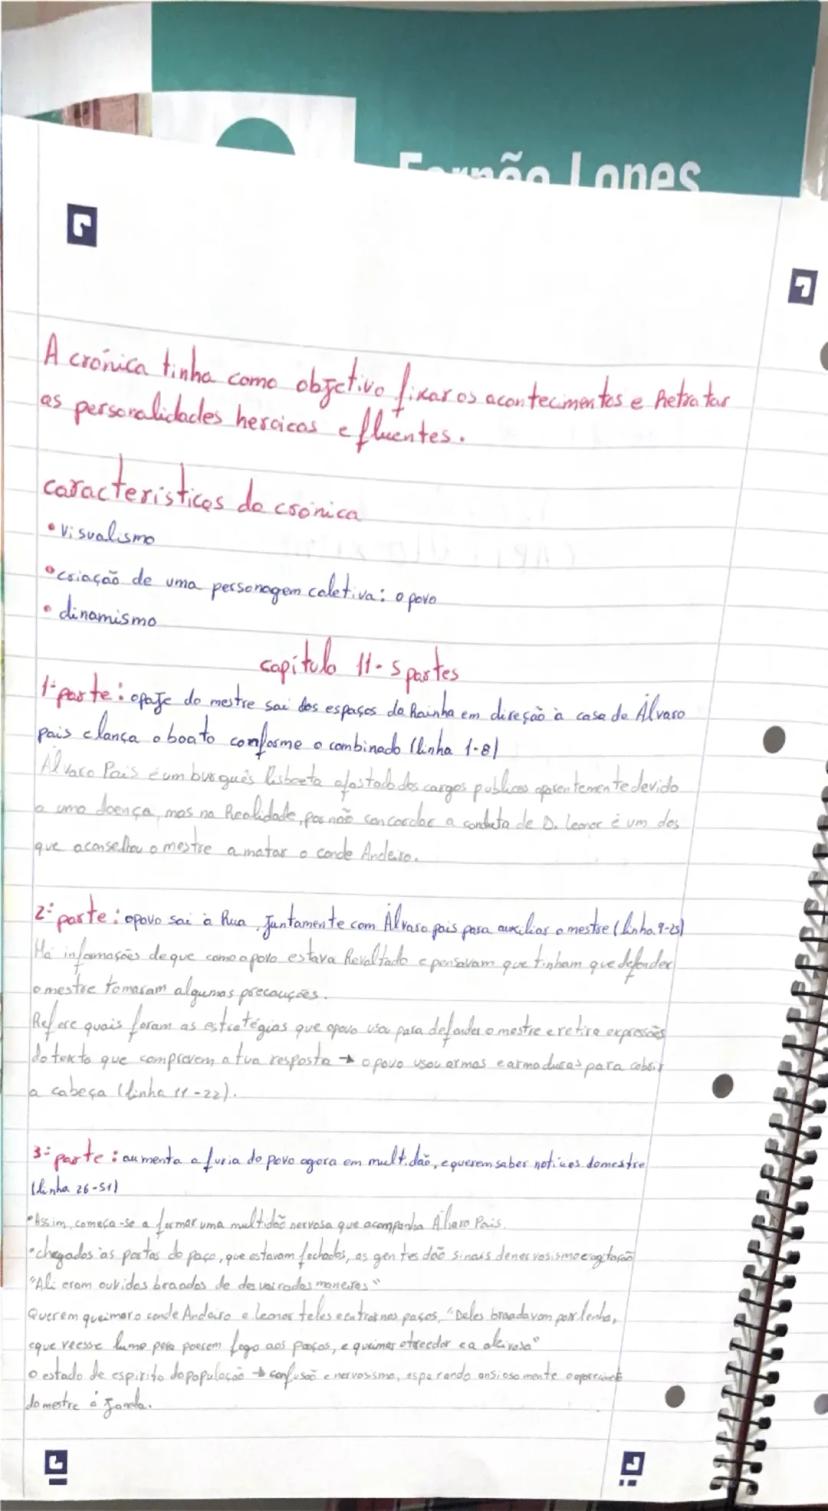 Fernão Lopes
A crónica tinha como objetivo fixar os acontecimentos e Retratar
as personalidades heroicas e fluentes.
caracteristicas da crónica
• visualismo
• criação de uma personagem coletiva: o povo
• dinamismo
capítulo 11 - 5 partes
1ª parte: o paje do mestre sai dos espaços da Rainha em direção à casa de Álvaro
pais e lança o boato conforme o combinado (linha 1-8)
Álvaro Pais é um burguês lisboeta afastado dos cargos publicos aparentemente devido
a uma doença, mas na Realidade, por não concordar a conduta de D. Leonor é um dos
que aconselhou o mestre a matar o conde Andeiro.
2ª parte: o povo sai à Rua, Juntamente com Álvaro pais para auxiliar o mestre (linha 9-25)
Há informações de que como o povo estava Revoltado e pensavam que tinham que defender
o mestre tomaram algumas precauções.
Refere quais foram as estratégias que o povo usou para defender o mestre e retira expressões
do texto que comprovem a tua resposta → o povo usou armas e armaduras para cobrir
a cabeça (linha 11-22).
3ª parte: aumenta a furia do povo agora em multidão, e querem saber noticias do mestre
(linha 26-51)
• Assim, começa-se a formar uma multidão nervosa que acompanha Álvaro Pais.
• chegados às portas do paço, que estavam fechadas, as gentes dão sinais de nervosismo e agitação
"Ali eram ouvidos braados de desvairadas maneiras"
Querem queimar o conde Andeiro e leonor teles e entrar nos paços, "Deles braadavam por lenha,
e que veesse lume pera poerem fogo aos paaços, e queimar o treedor e a aleivosa"
o estado de espirito da população → confusão e nervosismo, esperando ansiosamente o aparecimento
do mestre à Janela.